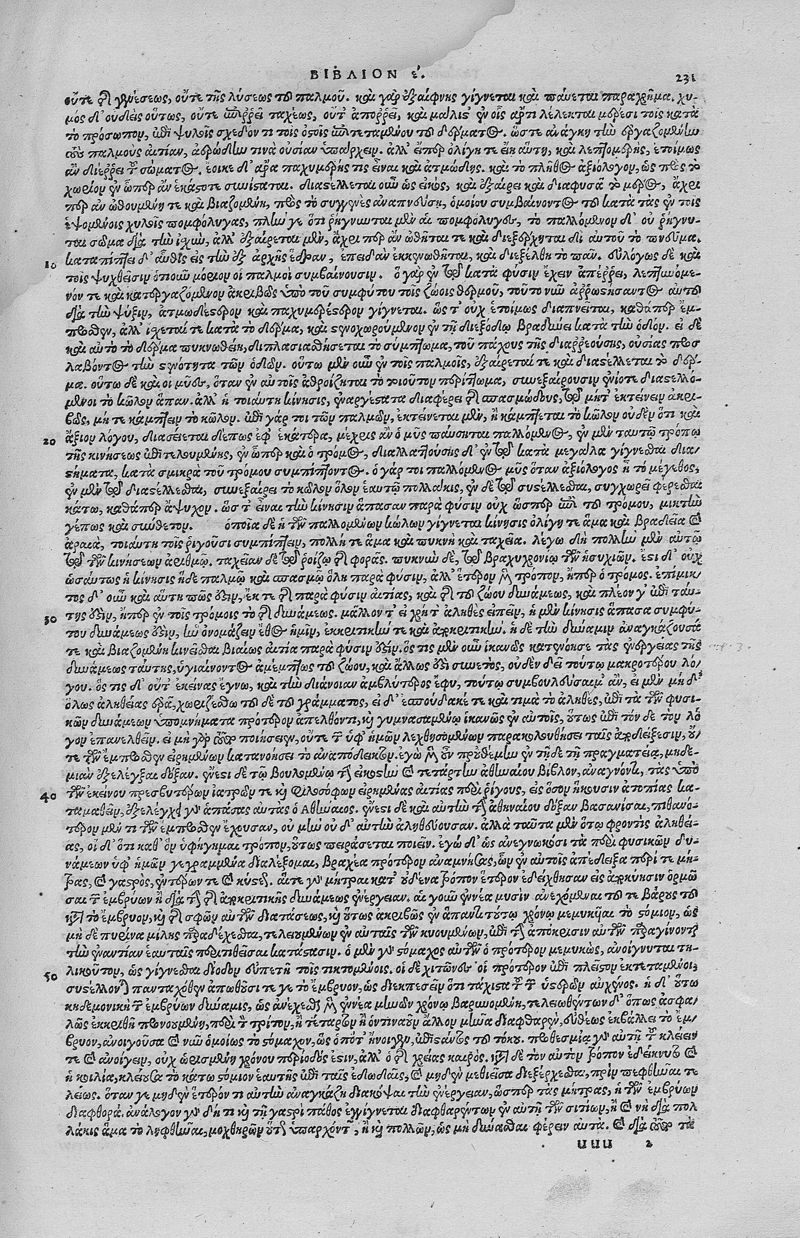 ΒΙΒΛΙΟΝ ε. 231
οὔτε τῆς γενέσεως, οὔτε τῆς λύσεως τοῦ παλμοῦ. καὶ γὰρ ἐξαίφνης γίγνεται καὶ παύεται παραχρῆμα. χυ-
μὸς δ' οὐδεὶς οὕτως, οὔτε ἐπιρρεῖ ταχέως, οὔτ' ἀπορρεῖ, καὶ μάλιστ' ἐν οἷς ἄρτι λέλεκται μέρεσι τοῖς κατὰ
τὸ πρόσωπον, ἐπὶ ψιλοῖς σχεδόν τι τοῖς ὀστοῖς ἐπιτεταμένου τοῦ δέρματος. ὥστε ἀνάγκη τὴν ἐργαζομένην
τοὺς παλμοὺς αἰτίαν, ἀερώδη τινὰ οὐσίαν ὑπάρχειν. ἀλλ' εἴπερ ὀλίγη τε εἴη αὕτη, καὶ λεπτομερὴς, ἑτοίμως
ἂν διέρρει τοῦ σώματος. ἔοικε δ' ἄρα παχυμερής τις εἶναι καὶ ἀτμώδης. καὶ τὸ πλῆθος ἀξιόλογος, ὡς πρὸς τὸ
χωρίον ἐν ᾧπερ ἂν ἑκάστοτε συνίσταται. διαστέλλεται οὖν ὡς εἰκὸς, καὶ ἐξαίρει καὶ διαφυσᾷ τὸ μέρος, ἄχρι
περ ἂν ὠθουμένη τε καὶ βιαζομένη, πρὸς τὸ συγγενὲς ἀναπνεύσῃ, ὁμοίου συμβαίνοντος τοῦ κατὰ τὰς ἐν τοῖς
ἑψομένοις χυλοῖς πομφόλυγας, πλήν γε ὅτι ῥήγνυνται μὲν αἱ πομφόλυγες, τὸ παλλόμενον δ' οὐ ῥήγνυ-
ται σῶμα διὰ τὴν ἰσχὺν, ἀλλ' ἐξαίρεται μὲν, ἄχρι περ ἂν ὠθῆται τε καὶ διεξέρχηται δι' αὐτοῦ τὸ πνεῦμα.
10 καταπίπτει δ' αὖθις εἰς τὴν ἐξ ἀρχῆς ἕδραν, ἐπειδὰν ἐκκενωθῆται, καὶ διεξέλθῃ τὸ πᾶν. εὐλόγως δὲ καὶ
τοῖς ψυχθεῖσιν ὁποιῶν μορίων οἱ παλμοὶ συμβαίνουσιν. ὃ γὰρ ἐν τῷ κατὰ φύσιν ἔχειν ἀπέρρει, λεπτυνόμε-
νόν τε καὶ κατεργαζόμενον ἀκριβῶς ὑπὸ τοῦ συμφύτου τοῖς ζώοις θερμοῦ, τοῦτο νῦν ἀρρωστήσαντος αὐτοῦ
διὰ τὴν ψύξιν, ἀτμωδέστερον καὶ παχυμερέστερον γίγνεται. ὥστ' οὐχ ἑτοίμως διαπνεῖται, καθάπερ ἔμ-
προσθεν, ἀλλ' ἴσχεταί τε κατὰ τὸ δέρμα, καὶ στενοχωρούμενον ἐν τῇ διεξόδῳ βραδύνει κατὰ τὴν ὁδόν. εἰ δὲ
καὶ αὐτὸ τὸ δέρμα πυκνωθείη, διπλασιασθήσεται τὸ σύμπτωμα, τοῦ πάχους τῆς διαρρεούσης, οὐσίας προς
λαβόντος τὴν στενότητα τῶν ὁδῶν. οὕτω μὲν οὖν ἐν τοῖς παλμοῖς, ἐξαίρεταί τε καὶ διαστέλλεται τὸ δέρ-
μα. οὕτω δὲ καὶ οἱ μύες, ὅταν ἐν αὐτοῖς ἀθροίζηται τὸ τοιοῦτον περίττωμα, συνεξαίρουσιν ἐνίοτε διαστελλό-
μενοι τὸ κῶλον ἅπαν. ἀλλ' ἡ τοιαύτη κίνησις, ἐναργέστατα διαφέρει τῆς σπασμώδους, τῷ μήτ' ἐκτείνειν ἀκρι-
βῶς, μήτε κάμπτειν τὸ κῶλον. ἐπὶ γάρ τοι τῶν παλμῶν, ἐκτείνεται μὲν, ἢ κάμπτεται τὸ κῶλον οὐδὲν ὅτι καὶ
20 ἄξιον λόγου, διασείεται δέ πως ἐφ' ἑκάτερα, μέχρις ἂν ὁ μῦς παύσηται παλλόμενος, ἐν μὲν ταὐτῷ τρόπῳ
τῆς κινήσεως ἐπιτελουμένης, ἐν ᾧπερ καὶ ὁ τρόμος, διαλλαττούσης δ' ἐν τῷ κατὰ μεγάλα γίγνεσθαι δια-
στήματα, κατὰ σμικρὰ τοῦ τρόμου συμπίπτοντος. ὁ γάρ τοι παλλόμενος μῦς ὅταν ἀξιόλογος ᾖ τὸ μέγεθος,
ἐν μὲν τῷ διαστέλλεσθαι, συνεξαίρει τὸ κῶλον ὅλον ἑαυτῷ πολλάκις, ἐν δὲ τῷ συστέλλεσθαι, συγχωρεῖ φέρεσθαι
κάτω, καθάπερ ἄψυχον. ὥστ' εἶναι τὴν κίνησιν ἅπασαν παρὰ φύσιν οὐχ ὥσπερ ἐπὶ τοῦ τρόμου, μικτήν
γέ πως καὶ σύνθετον. ὁποία δὲ ἡ τῶν παλλομένων κώλων γίγνεται κίνησις ὀλίγη τε ἅμα καὶ βραδεῖα καὶ
ἀραιὰ, τοιαύτη ῥίγουσι συμπίπτει, πολλή τε ἅμα καὶ πυκνὴ καὶ ταχεῖα. λέγω δὴ πολλὴν μὲν αὐτὴν
τῷ τῶν κινήσεων ἀριθμῷ. ταχεῖαν δὲ τῷ ῥοίζῳ τῆς φορᾶς. πυκνὴν δὲ, τῷ βραχυχρονίῳ τῶν ἡσυχιῶν. ἔστι δ' οὐχ
ὡσαύτως ἡ κίνησις ἥδε παλμῷ καὶ σπασμῷ ὅλη παρὰ φύσιν, ἀλλ' ἕτερον μὲν τρόπον, ἤπερ ὁ τρόμος. ἐπίμικ-
τος δ' οὖν καὶ αὐτή πως ἐστιν, ἔκ τε τῆς παρὰ φύσιν αἰτίας, καὶ τῆς τοῦ ζώου δυνάμεως, καὶ πλέον γ' ἐπὶ ταύ-
30 της ἐστὶν, ἤπερ ἐν τοῖς τρόμοις τὸ τῆς δυνάμεως. μᾶλλον τ' εἰ χρή τ' ἀληθὲς εἰπεῖν, ἡ μὲν κίνησις ἅπασα συμφύ-
του δυνάμεώς ἐστιν, ἣν ὀνομάζειν ἔθος ἡμῖν, ἐκκριτικήν τε καὶ ἀποκριτικήν. ἡ δὲ τὴν δύναμιν ἀναγκάζουσά
τε καὶ βιαζομένη κινεῖσθαι βιαίως αἰτία παρὰ φύσιν ἐστίν. ὅστις μὲν οὖν ἱκανῶς κατενόησε τὰς ἐνεργείας τῆς
δυνάμεως ταύτης, ὑγιαίνοντος ἀμέμπτως τοῦ ζώου, καὶ ἄλλως ἐστὶ συνετὸς, οὐδὲν δεῖ τούτῳ μακροτέρου λό-
γου. ὅστις δ' οὔτ' ἐκείνας ἔγνω, καὶ τὴν διάνοιαν ἀμβλύτερος ἔφυ, τούτῳ συμβουλεύσαιμ' ἂν, εἰ μὲν μηδ'
ὅλως ἀληθείας ἐρᾷ, χωρίζεσθαι τοῦ δὲ τοῦ γράμματος, εἰ δ' ἐσπούδακέ τε καὶ τιμᾷ τὸ ἀληθὲς, ἐπὶ τὰ τῶν φυσι-
κῶν δυνάμεων ὑπομνήματα πρότερον ἀπελθόντι, καὶ γυμνασαμένῳ ἱκανῶς ἐν αὐτοῖς, οὕτως ἐπὶ τόνδε τὸν λό-
γον ἐπανελθεῖν. εἰ μὴ γὰρ οὕτω ποιήσειεν, οὔτε τῶν ὑφ' ἡμῶν λεχθησομένων παρακολουθήσει ταῖς ἀποδείξεσιν, οὔ-
τε τῶν ἔμπροσθεν εἰρημένων κατανοήσει τὸ ἀναπόδεικτον. ἐγὼ μὲν οὖν προὐθέμην ἐν τῇδε τῇ πραγματείᾳ, μηδε-
μίαν ἐξελέγξαι δόξαν. ἔνεστι δὲ τῷ βουλομένῳ τὴν εἰκοστὴν καὶ τετάρτην ἀθηναίου βίβλον, ἀναγνόντι, τὰς ὑπὸ
40 τῶν ἐκείνου πρεσβυτέρων ἰατρῶν τε καὶ φιλοσόφων εἰρημένας αἰτίας περὶ ῥίγους, εἰς ὅσον ἥκουσιν ἀτοπίας κα-
ταμαθεῖν, ἐξελέγχει γὰρ ἁπάσας αὐτὰς ὁ Ἀθήναιος. ἔνεστι δὲ καὶ αὐτὴν τὴν ἀθηναίου δόξαν βασανίσαι, πιθανο-
τέραν μέν τι τῶν ἔμπροσθεν ἔχουσαν, οὐ μὴν οὐδ' αὐτὴν ἀληθεύουσαν. ἀλλὰ ταῦτα μὲν ὅτῳ φροντὶς ἀληθεί-
ας, οἶδ' ὅτι καθ' ὃν ὑφήγημαι τρόπον, οὕτως πειράσεται ποιεῖν. ἐγὼ δ' ὡς ἀνεγνωκόσι τὰ περὶ φυσικῶν δυ-
νάμεων ὑφ' ἡμῶν γεγραμμένα διαλέξομαι, βραχέα πρότερον ἀναμνήσας, ὧν ἐν αὐτοῖς ἀπέδειξα περί τε μή-
τρας, καὶ γαστρὸς, ἐντέρων τε καὶ κύστεως. αἵτε γὰρ μῆτραι κατ' οὐδένα τρόπον ἕτερον ἐδείχθησαν εἰς ἀπόκρισιν ὁρμῶ-
σαι τῶν ἐμβρύων ἢ διὰ τῆς ἀποκριτικῆς δυνάμεως ἐνέργειαν. αἱ γοῦν ἐννέα μησὶν ἀνεχόμεναι τοῦ τε βάρους τοῦ
κατὰ τὸ ἔμβρυον, καὶ τῆς σφῶν αὐτῶν διατάσεως, καὶ οὕτως ἀκριβῶς ἐν ἅπαντι τούτῳ χρόνῳ μεμυκυῖαι τὸ στόμιον, ὡς
μηδὲ πυρῆνα μήλης παραδέχεσθαι, τελειωθέντων ἐν αὐταῖς τῶν κυουμένων, ἐπὶ τὴν ἀπόκρισιν αὐτῶν παραγίνονται
τὴν ἐναντίαν ἑαυταῖς περιτιθεῖσαι κατάστασιν. ὁ μὲν γὰρ στόμαχος αὐτῶν ὁ πρότερον μεμυκὼς, ἀνοίγνυται τη-
50 λικοῦτον, ὡς γίγνεσθαι δίοδον εὐπετῆ τοῖς τικτομένοις. οἱ δὲ χιτῶνες οἱ πρότερον ἐπὶ πλεῖστον ἐκτεταμένοι,
συστέλλονται πανταχόθεν ἀπωθοῦντές γε τὸ ἔμβρυον, ὡς ἐκπεσεῖν ὅτι τάχιστα τοῦ τῆς ὑστέρων αὐχένος. ἡ δ' οὕτω
κηδεμονικὴ τῶν ἐμβρύων δύναμις, ὡς ἀνέχεσθαι μὲν ἐννέα μηνῶν χρόνῳ βαρυνομένη, τελειωθέντων δ' ὅπως ἀσφα-
λῶς ἐκκριθῇ προνοουμένη, περὶ τρίτον, ἢ τέταρτον ἢ ὁντιναοῦν ἄλλον μῆνα διαφθαρὲν, εὐθέως ἐκβάλλει τὸ ἔμ-
βρυον, ἀνοίγουσα καὶ νῦν ὁμοίως τὸ στόμαχον, ὡς ὁπότ' ἤνοιγεν, ἐπιστάντος τοῦ τόκου. προθεσμία γὰρ αὐτῇ τοῦ κλείειν
τε καὶ ἀνοίγειν, οὐχ ὡρισμένη χρόνου περίοδός ἐστιν, ἀλλ' ὁ τῆς χρείας καιρός. κατὰ δὲ τὸν αὐτὸν τρόπον ἐδείκνυτο καὶ
ἡ κοιλία, κλείουσα τὸ κάτω στόμιον ἑαυτῆς ἐπὶ ταῖς ἐδωδαῖς, καὶ μηδὲν μεθιεῖσα διεξέρχεσθαι, πρὶν πεφθῆναι τε-
λέως. ὅταν γε μηδὲν ἕτερόν τι αὐτὴν ἀναγκάζῃ διακόψαι τὴν ἐνέργειαν, ὥσπερ τὰς μήτρας, ἡ τῶν ἐμβρύων
διαφθορά. ἀνάλογον γὰρ δή τι καὶ τῇ γαστρὶ πάθος ἐγγίγνεται διαφθαρέντων ἐν αὐτῇ τῶν σιτίων, ἢ καὶ νὴ δία πολ-
λάκις ἅμα τὸ ληφθῆναι, μοχθηρῶν ὅτι ὑπαρχόντων, ἢ καὶ πολλῶν, ὡς μὴ δύνασθαι φέρειν αὐτά. καὶ διὰ τοῦτο τὰ
uuu 2